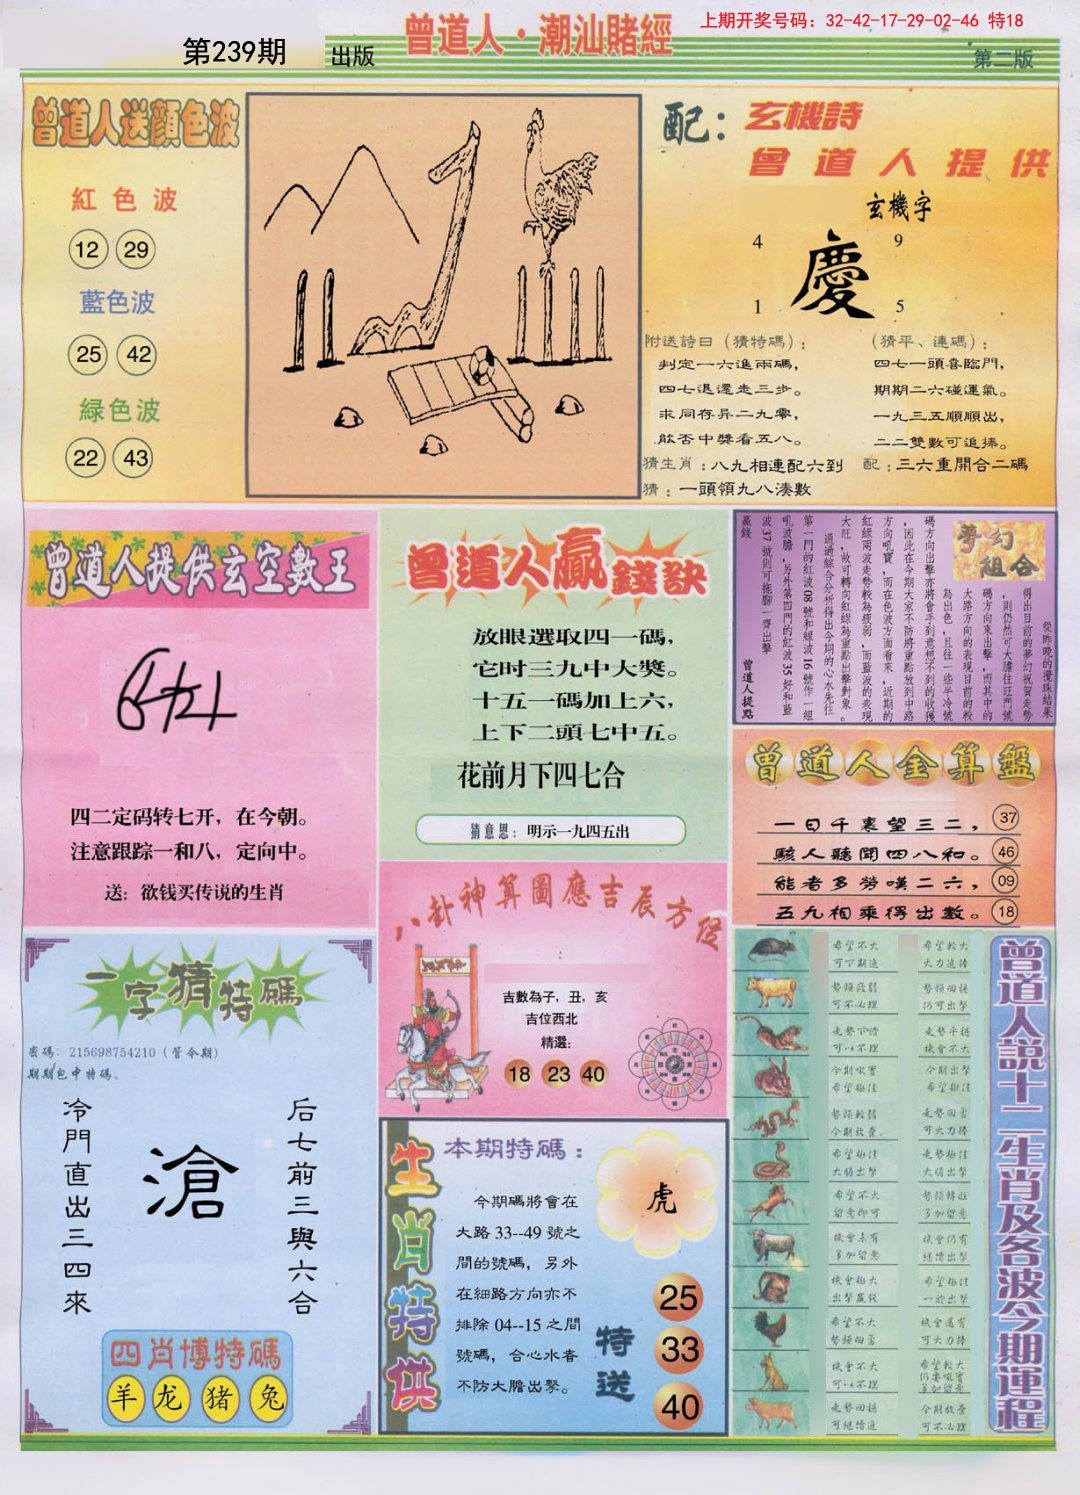 上期开奖号码：32-42-17-29-02-46 特18
第239期
出版
曾道人·潮汕賭經
第二版
曾道人送顔色波
紅色波
12 29
藍色波
25 42
緑色波
22 43
配：玄機詩
曾道人提供
玄機字
4 9
慶
1 5
附送詩曰（猜特碼）：
判定一六進兩碼，
四七退還走三步。
求同存异二九零，
能否中獎看五八。
（猜平、連碼）：
四七一頭喜臨門，
期期二六碰運氣。
一九三五順順出，
二二雙數可追捧。
猜生肖：八九相連配六到
配：三六重開合二碼
猜：一頭領九八湊數
曾道人提供玄空數王
四二定码转七开，在今朝。
注意跟踪一和八，定向中。
送：欲钱买传说的生肖
曾道人贏錢訣
放眼選取四一碼，
它时三九中大獎。
十五一碼加上六，
上下二頭七中五。
花前月下四七合
猜意思：明示一九四五出
夢幻組合
從昨晚的攪珠結果
得出目前的夢幻祝賀走勢
，則仍然可大膽往旺門號
碼方向來出擊，而其中的
大路方向的表現目前的較
為出色，且往一些半冷號
碼方向出擊亦將會手到意想不到的收獲
，因此在今期大家不防將重點放到中路
方向吼寶，而在色波方面看來，近期的
紅綠兩波走勢較為疲弱，而藍波的表現
大旺，故可轉向紅綠為重點出擊對象。
通過綜合分析得出今期的心水先往
第一門的紅波08號和綠波16號作一組
吼波膽，另外第四門的紅波35好和藍
波37號則可拖腳一齊出擊
贏錢
曾道人提點
曾道人全算盤
一日千裏望三二，37
駭人聽聞四八和。46
能者多勞嘆二六，09
五九相乘得出數。18
八卦神算圖應吉辰方位
吉數為子，丑，亥
吉位西北
精選：
18 23 40
一字猜特碼
密碼：215698754210（管令期）
期期包中特碼、
冷門直出三四來
滄
后七前三與六合
四肖博特碼
羊 龙 猪 兔
生肖特供
本期特碼：
今期碼將會在
大路33--49號之
間的號碼，另外
在細路方向亦不
排除04--15之間
號碼，合心水者
不防大膽出擊。
虎
特送
25
33
40
曾道人說十二生肖及各波今期運程
希望不大
可下期追
希望較大
大力追捧
勢頭疲弱
可不必理
勢頭回穩
仍可出擊
走勢下滑
可以不理
走勢平穩
機會不大
今期吼寶
希望極佳
今期出擊
希望極佳
勢頭較弱
今期放棄
走勢回勇
可大力捧
希望極佳
大膽出擊
走勢極佳
大膽出擊
希望不大
留意即可
勢頭轉旺
多加留意
機會未有
多加留意
機會仍有
繼續出擊
機會極大
出擊贏錢
希望極佳
一於出擊
希望不大
勢頭回勇
機會還有
可大力捧
機會不大
可以不理
希望較大
仍要吼實
多加留意
走勢回穩
可繼續追
今期放棄
可不必理